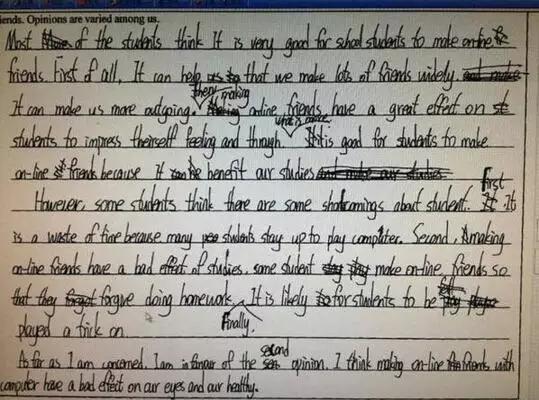 iends. Opinions are varied among us.
Most of the students think It is very good for school students to make on-line
friends. First of all, It can help that we make lots of friends widely.
It can make us more outgoing. then making on-line friends have a great effect on
students to impress theirself feeling and through. what's more It is good for students to make
on-line friends because It can be benefit our studies and make our studies
However, some students think there are some shortcomings about student. First It
is a waste of time because many students stay up to play computer. Second, making
on-line friends have a bad effect of studies, some student make on-line friends so
that they forgive doing homework. It is likely for students to be
Finally.
played a trick on.
As far as I am concerned, I am in favour of the second opinion. I think making on-line friends with
computer have a bad effect on our eyes and our healthy.